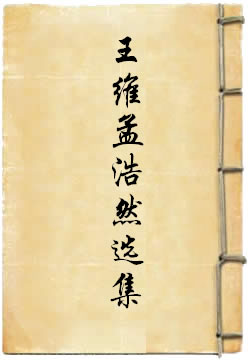 王维孟浩然选集